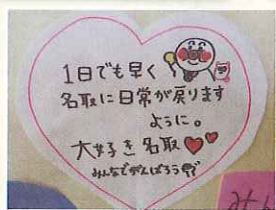 1日でも早く
名取に日常が戻ります
ように。
大好き名取
みんなでがんばろう